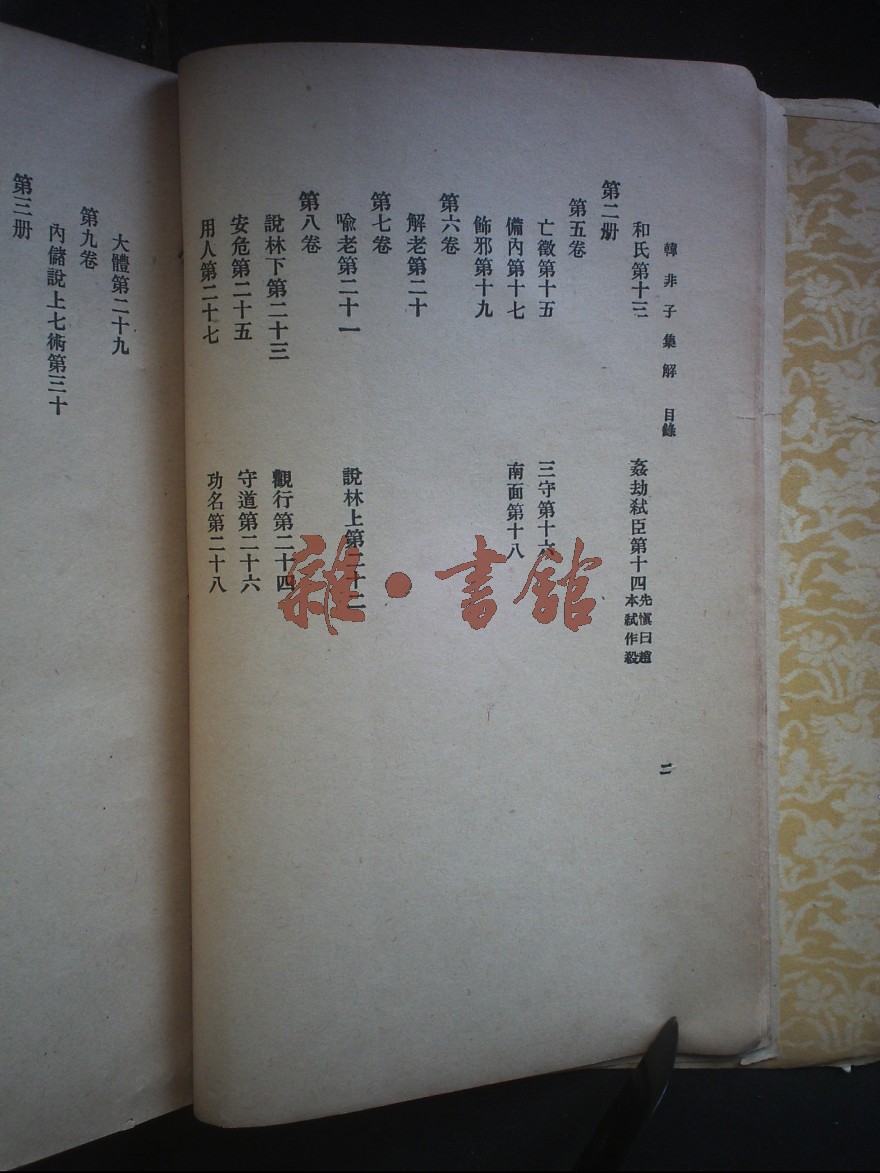 韓非子集解 目錄
二
和氏第十三
姦劫弒臣第十四
先愼曰趙
本弒作殺
第二册
第五卷
亡徵第十五
三守第十六
備內第十七
南面第十八
飾邪第十九
第六卷
解老第二十
第七卷
喩老第二十一
說林上第二十二
第八卷
說林下第二十三
觀行第二十四
安危第二十五
守道第二十六
用人第二十七
功名第二十八
大體第二十九
第九卷
內儲說上七術第三十
第三册
雜·書館